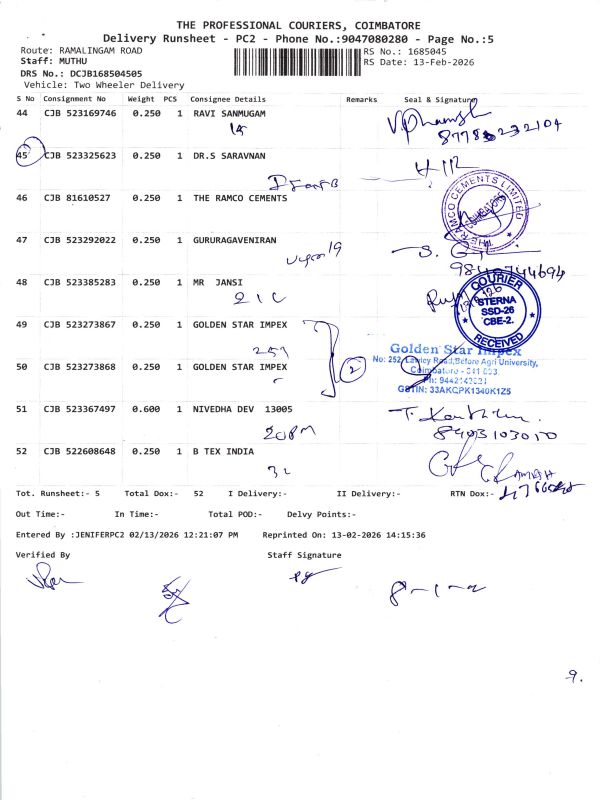 THE PROFESSIONAL COURIERS, COIMBATORE
Delivery Runsheet - PC2 - Phone No.:9047080280 - Page No.:5
Route: RAMALINGAM ROAD RS No.: 1685045
Staff: MUTHU RS Date: 13-Feb-2026
DRS No.: DCJB168504505
Vehicle: Two Wheeler Delivery
S No Consignment No Weight PCS Consignee Details Remarks Seal & Signature
44 CJB 523169746 0.250 1 RAVI SANMUGAM
45 CJB 523325623 0.250 1 DR.S SARAVNAN
46 CJB 81610527 0.250 1 THE RAMCO CEMENTS
THE RAMCO CEMENTS LIMITED
COIMBATORE
47 CJB 523292022 0.250 1 GURURAGAVENIRAN
48 CJB 523385283 0.250 1 MR JANSI
21C
COURIER
STERNA
SSD-26
CBE-2.
RECEIVED
49 CJB 523273867 0.250 1 GOLDEN STAR IMPEX
Golden Star Impex
No: 252, Lawley Road, Before Agri University,
Coimbatore - 641 003.
GSTIN: 33AKQPK1340K1Z5
50 CJB 523273868 0.250 1 GOLDEN STAR IMPEX
2
51 CJB 523367497 0.600 1 NIVEDHA DEV 13005
8903103010
52 CJB 522608648 0.250 1 B TEX INDIA
Tot. Runsheet:- 5 Total Dox:- 52 I Delivery:- II Delivery:- RTN Dox:-
Out Time:- In Time:- Total POD:- Delvy Points:-
Entered By :JENIFERPC2 02/13/2026 12:21:07 PM Reprinted On: 13-02-2026 14:15:36
Verified By Staff Signature
8-1-2
9.